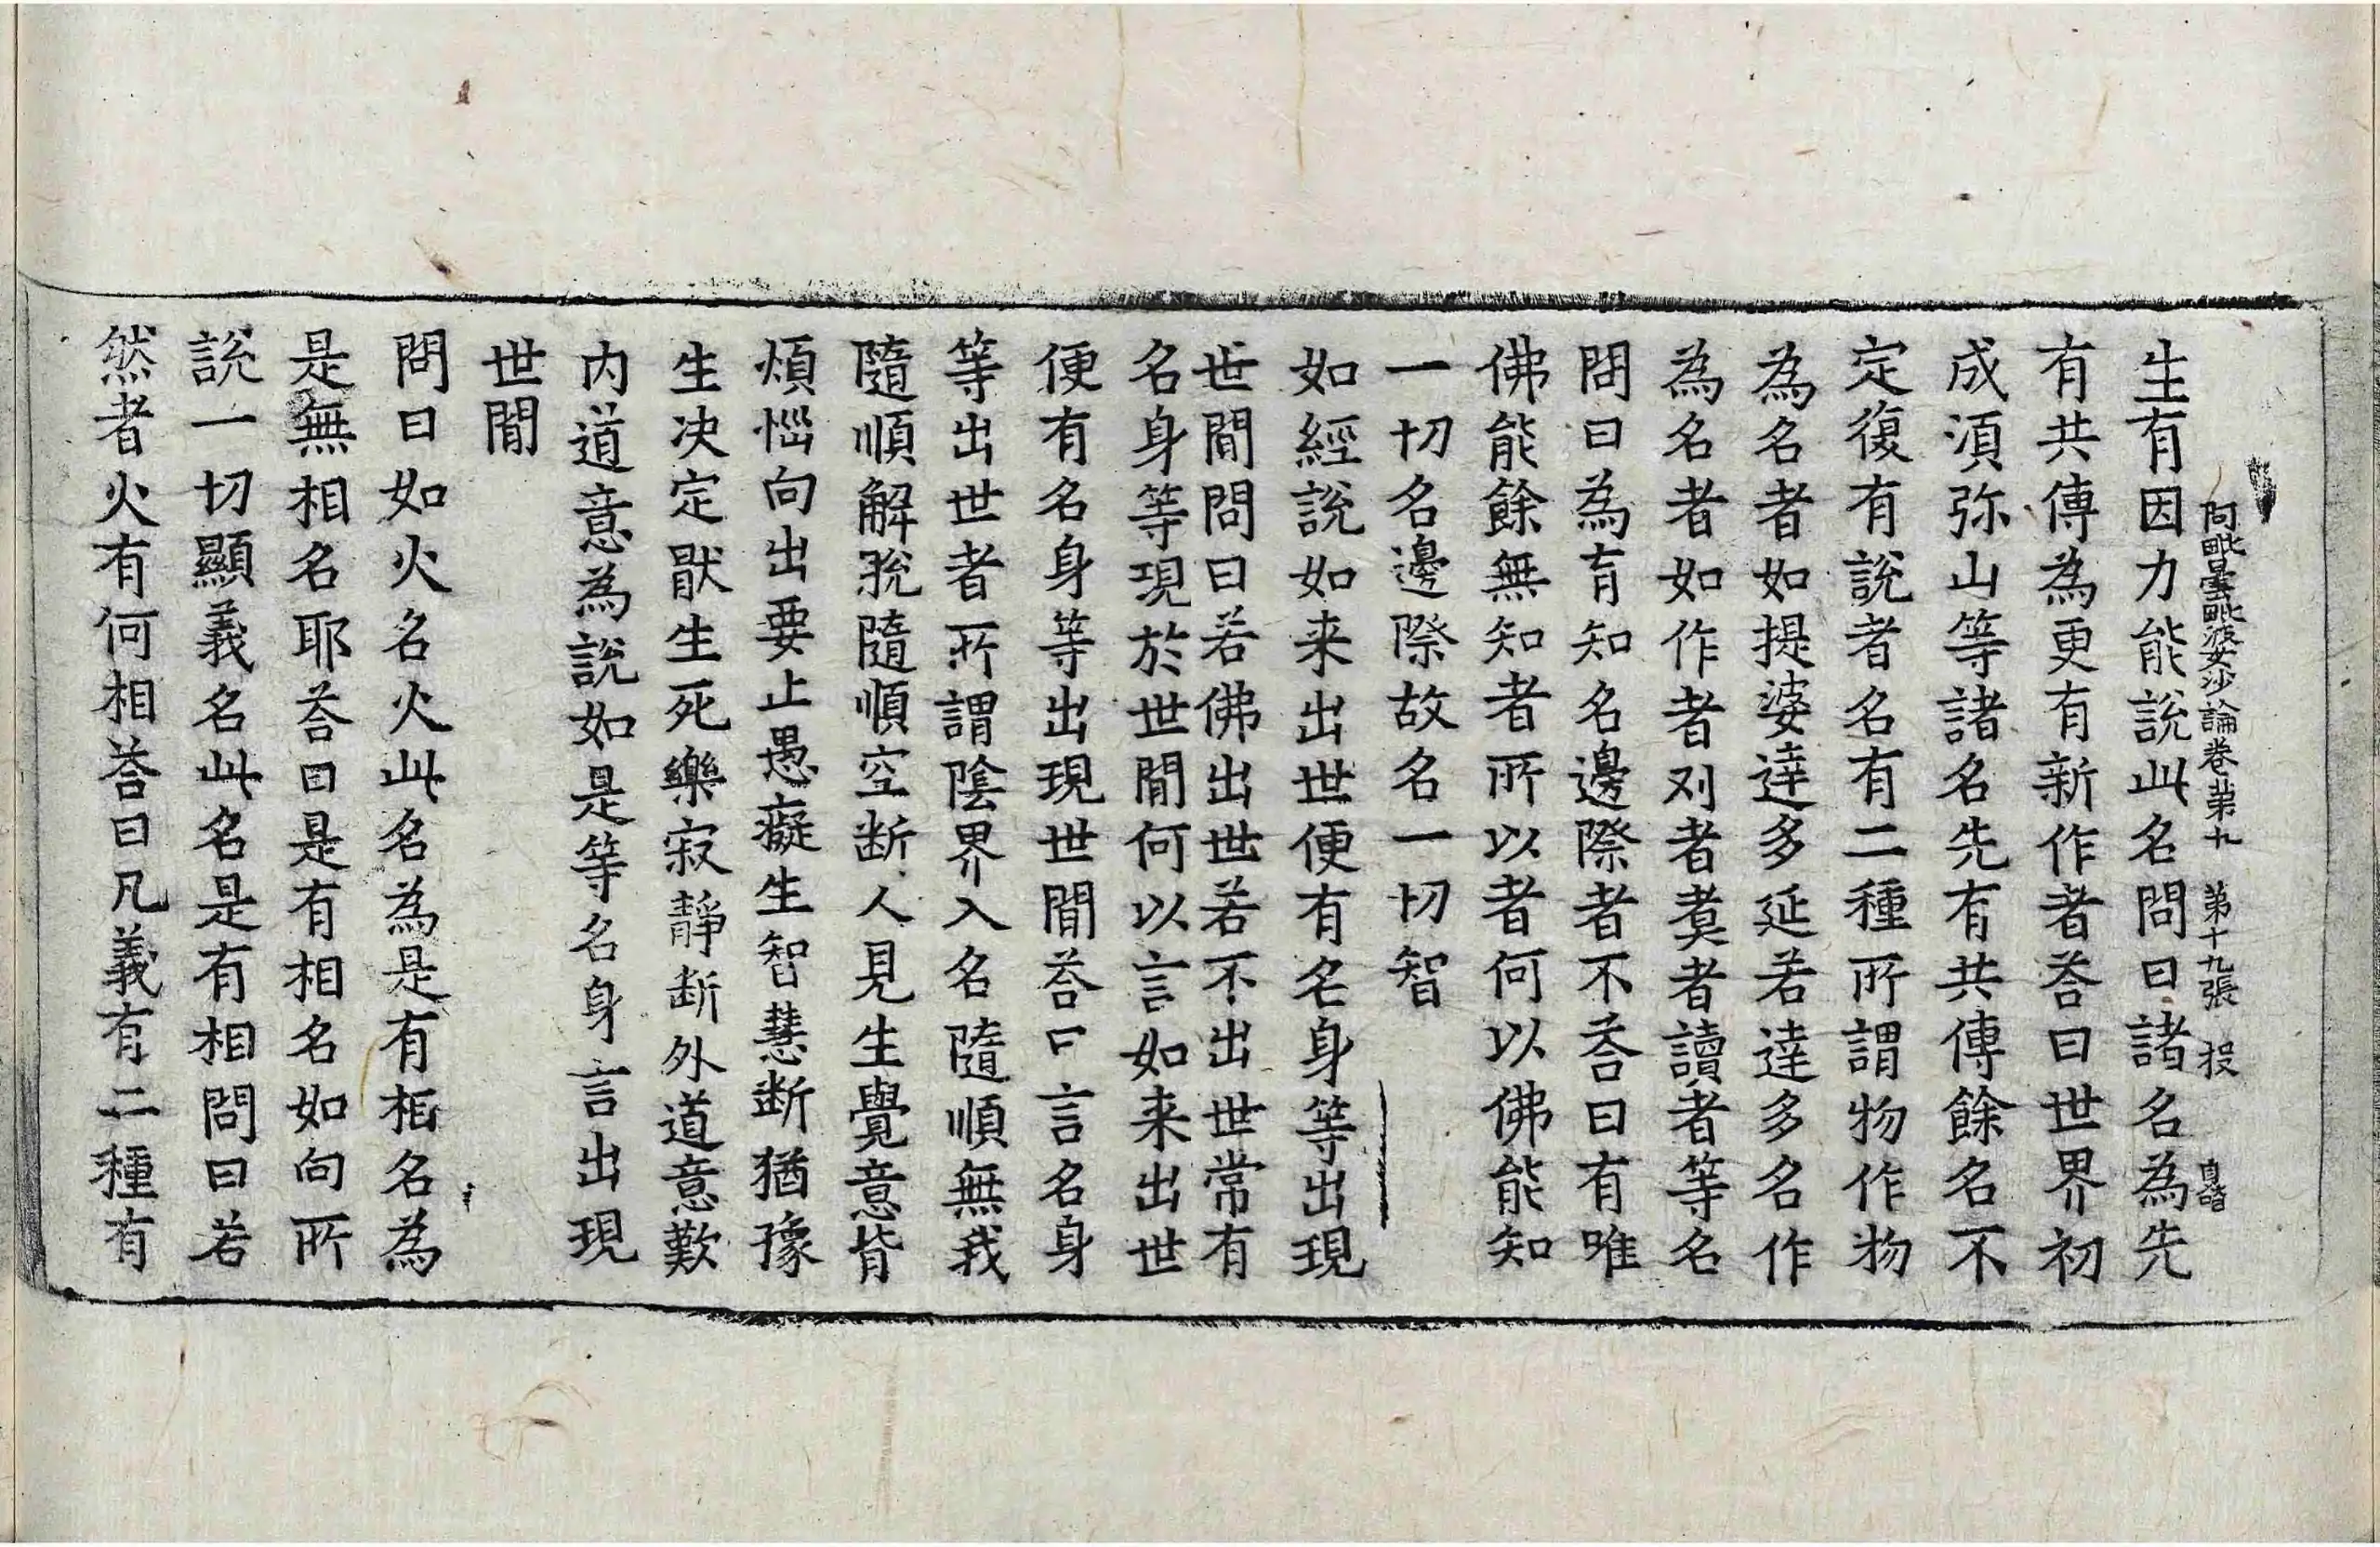 阿毗曇毗婆沙論卷第九　第十九張　投
生有因力能說此名問曰諸名為先
有共傳為更有新作者荅曰世界初
成湏弥山等諸名先有共傳餘名不
定復有說者名有二種所謂物作物
為名者如提婆達多延若達多名作
為名者如作者刈者煑者讀者等名
問曰為有知名邊際者不荅曰有唯
佛能餘無知者所以者何以佛能知
一切名邊際故名一切智
如經說如来出世便有名身等出現
世間問曰若佛出世若不出世常有
名身等現於世間何以言如来出世
便有名身等出現世間荅曰言名身
等出世者所謂陰界入名隨順無我
隨順解脫隨順空断人見生覺意背
煩惱向出要止愚癡生智慧断猶豫
生决定厭生死樂寂静断外道意歎
内道意為說如是等名身言出現
世間
問曰如火名火此名為是有相名為
是無相名耶荅曰是有相名如向所
說一切顯義名此名是有相問曰若
然者火有何相荅曰凡義有二種有